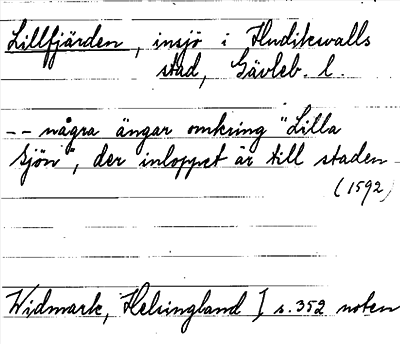 Lillfjärden, insjö i Hudiksvalls
stad, Gävleb. l.
-- några ängar omkring "Lilla
Sjön", der inloppet är till staden -
(1592)
Widmark, Helsingland I s. 352 noten